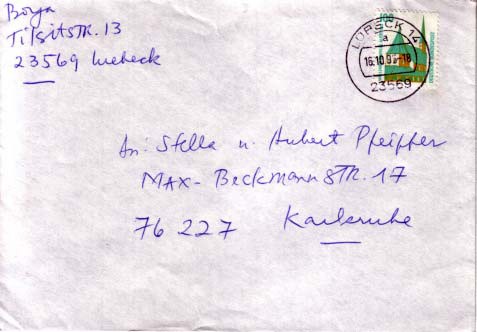 Borja
Tilsitstr. 13
23569 Luebeck
100
LÜBECK 14
a
16.10.9 -18
23569
An: Stella u. Hubert Pfeiffer
MAX-BeckmannSTR. 17
76 227 Karlsruhe